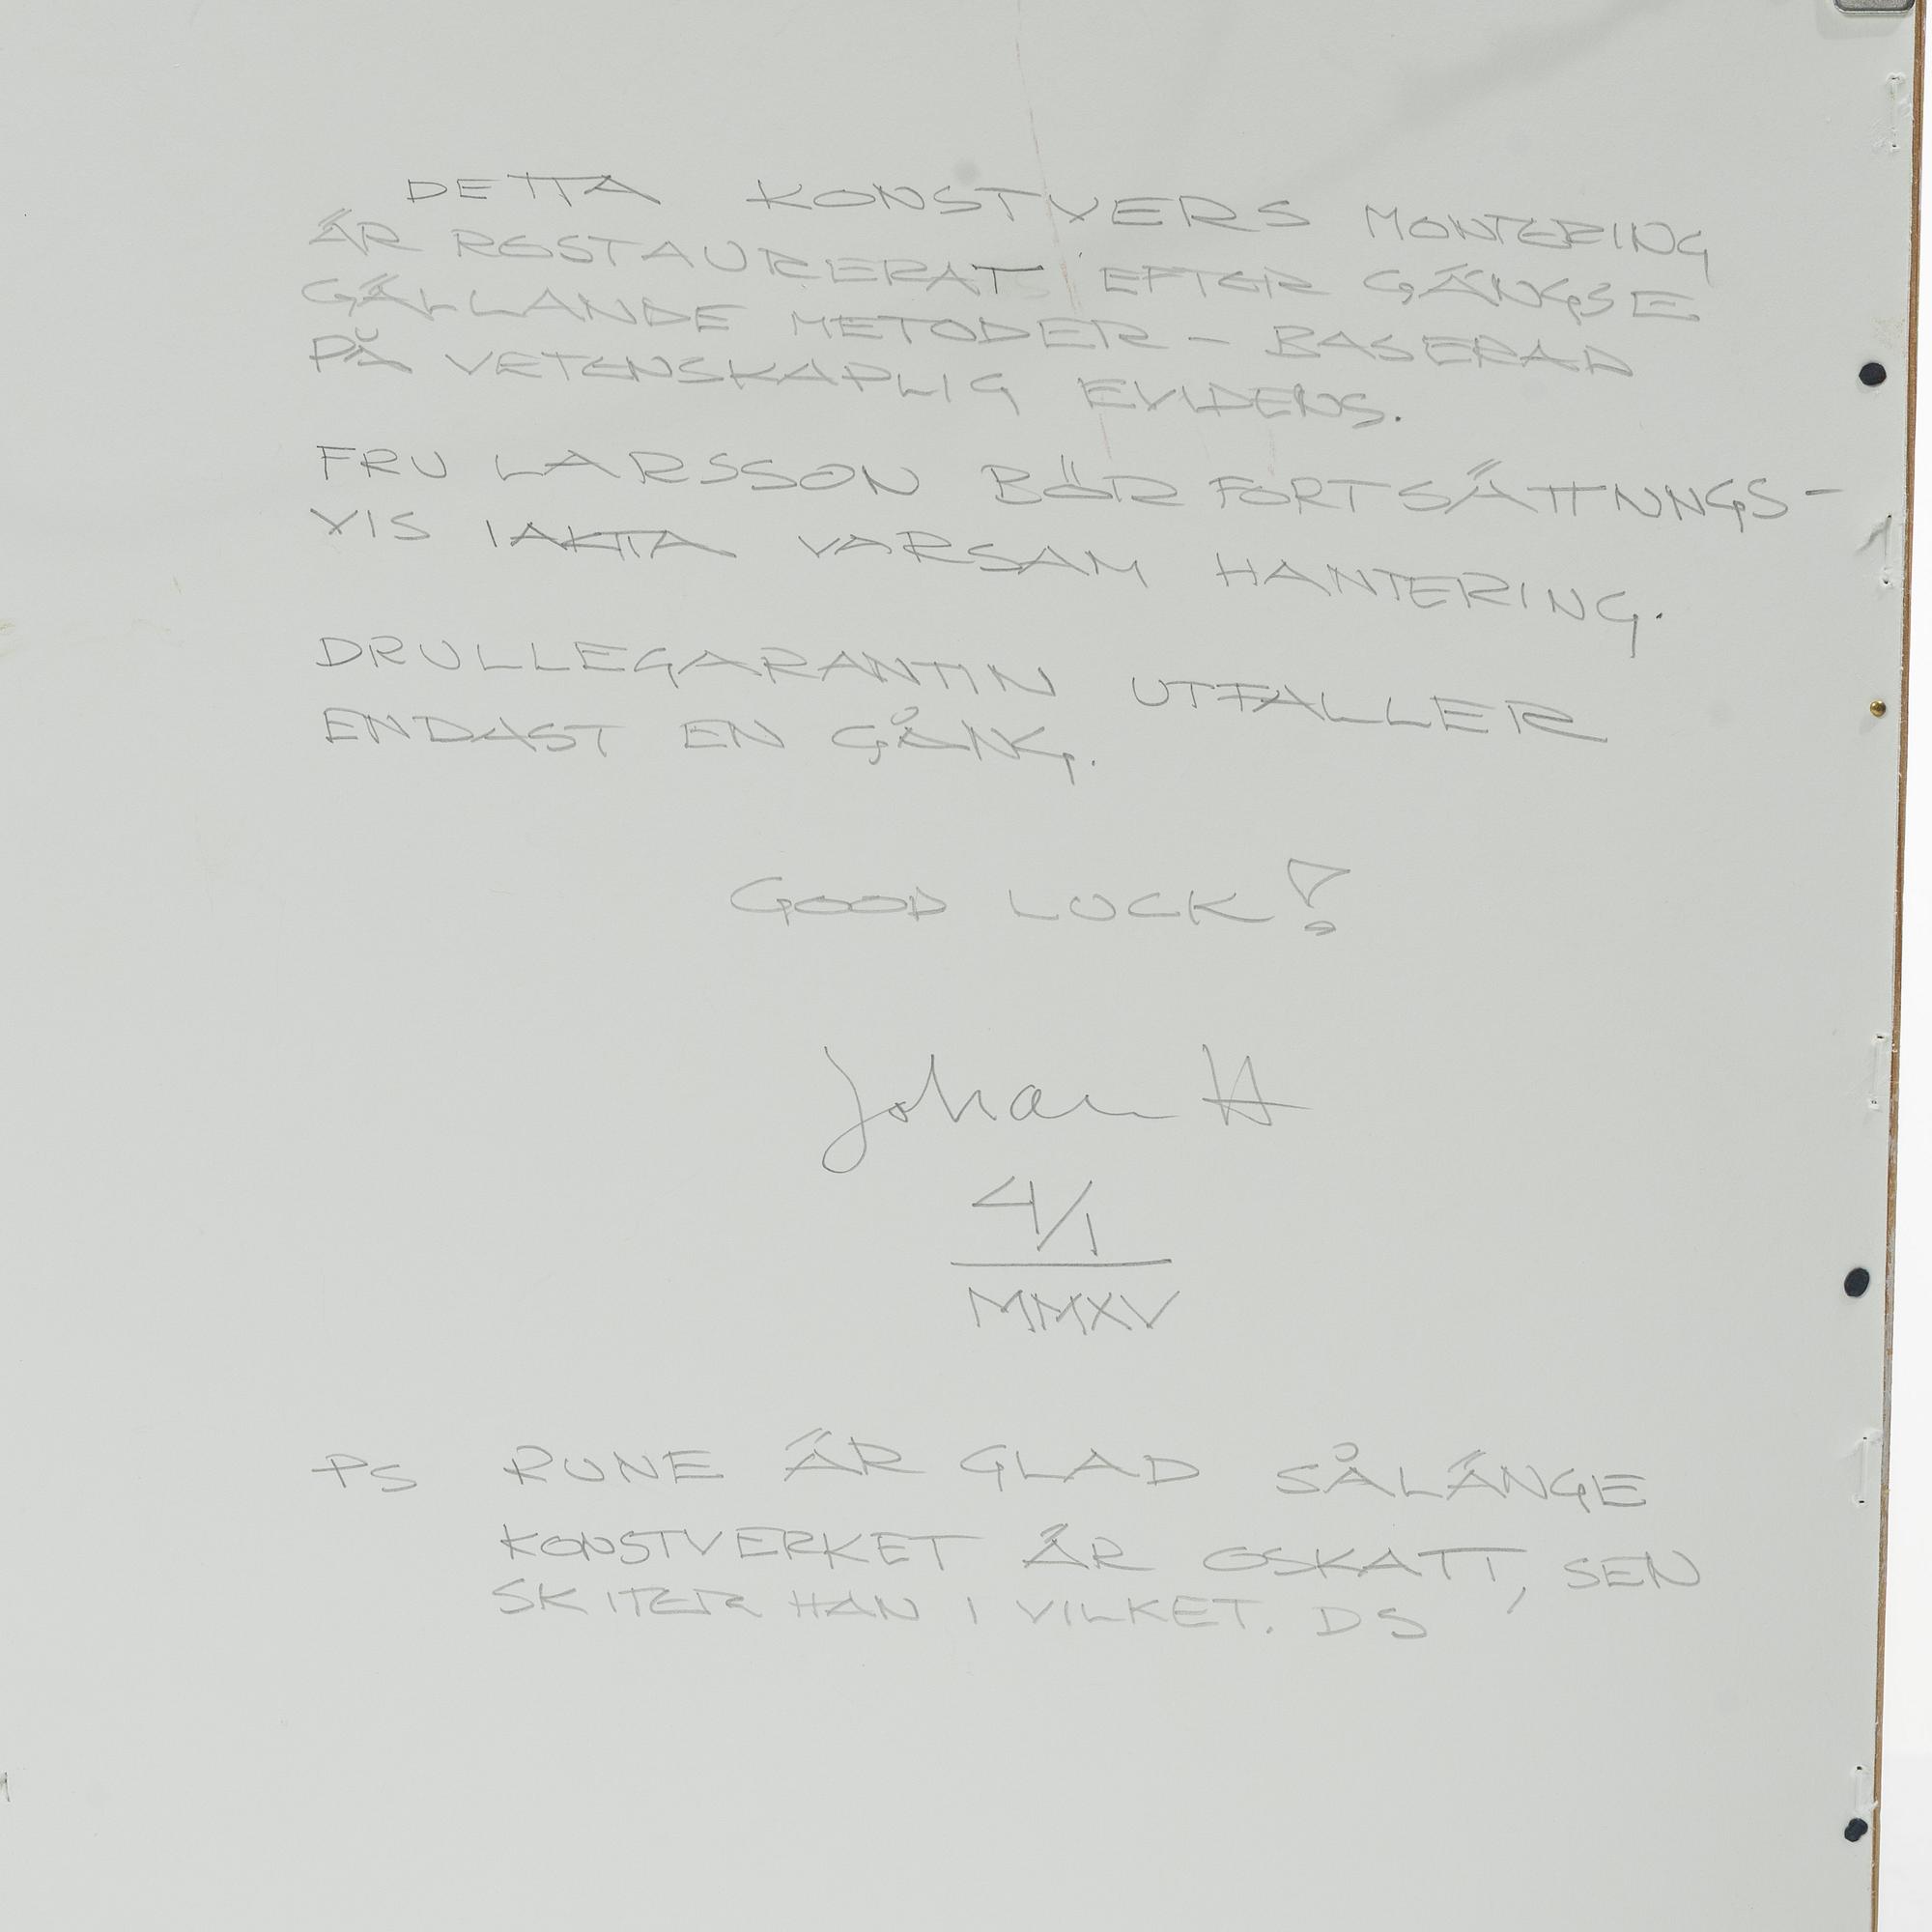 DETTA KONSTVERS MONTERING
ÄR RESTAURERAT EFTER GÄNGSE
GÄLLANDE METODER - BASERAD
PÅ VETENSKAPLIG EVIDENS.
FRU LARSSON BÖR FORTSÄTTNINGS-
VIS IAKTTA VARSAM HANTERING.
DRULLEGARANTIN UTFALLER
ENDAST EN GÅNG.
GOOD LUCK!
Johan H
4/1
MMXV
PS RUNE ÄR GLAD SÅLÄNGE
KONSTVERKET ÄR OSKATT, SEN
SKITER HAN I VILKET. DS